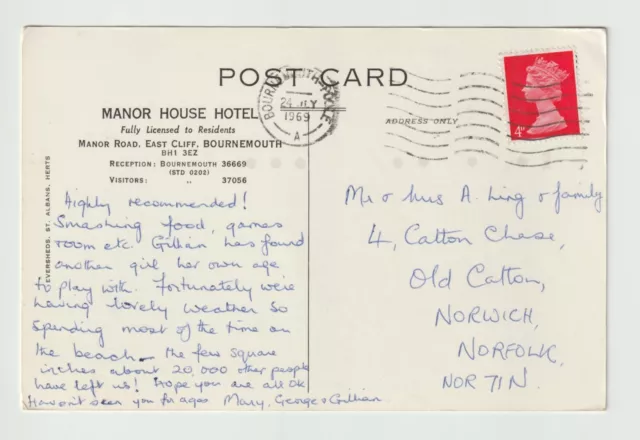 POST CARD
MANOR HOUSE HOTEL
Fully Licensed to Residents
MANOR ROAD, EAST CLIFF, BOURNEMOUTH
BH1 3EZ
RECEPTION: BOURNEMOUTH 36669
(STD 0202)
VISITORS: " 37056
EVERSHEDS, ST. ALBANS, HERTS
BOURNEMOUTH-POOLE
24 JLY
1969
A
ADDRESS ONLY
4D
Highly recommended!
Smashing food, games
room etc. Gillian has found
another girl her own age
to play with. Fortunately we're
having lovely weather so
spending most of the time on
the beach - the few square
inches about 20,000 other people
have left us! Hope you are all OK
Haven't seen you for ages Mary, George & Gillian
Mr & Mrs A. Ling & family
4, Catton Chase,
Old Catton,
NORWICH,
NORFOLK,
NOR 71N.